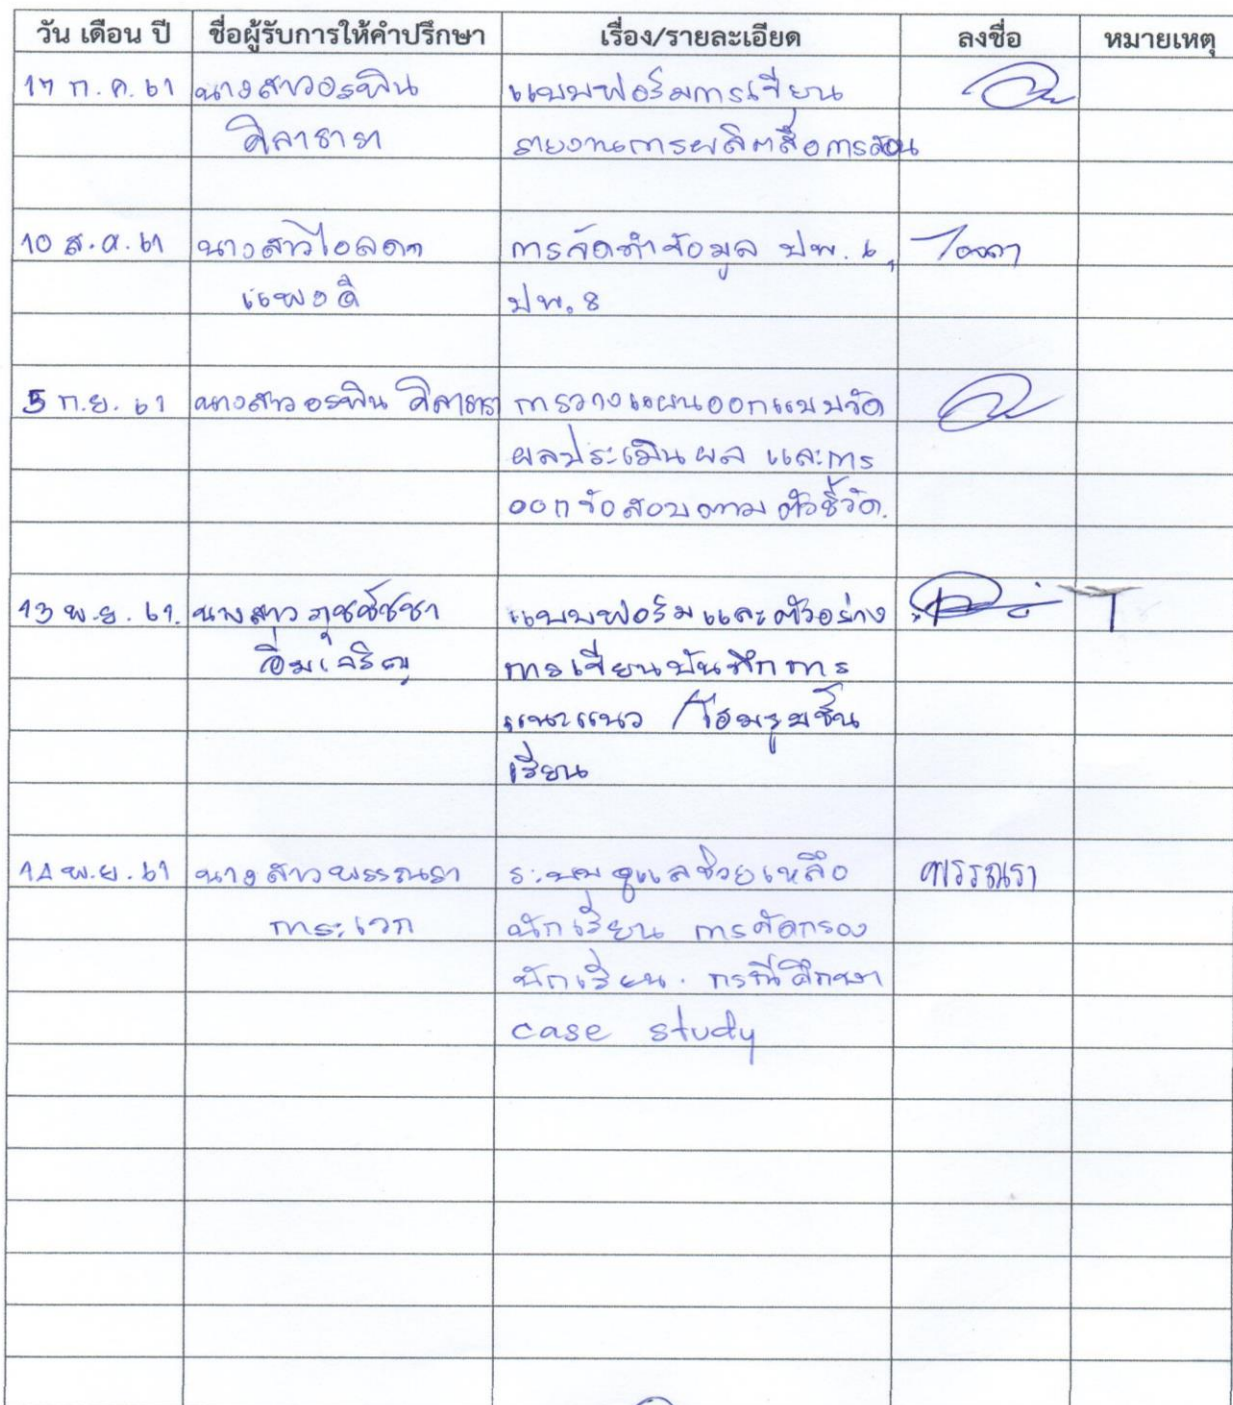 วัน เดือน ปี ชื่อผู้รับการให้คำปรึกษา เรื่อง/รายละเอียด ลงชื่อ หมายเหตุ
17 ก.ค. 61 นางสาวอรพิน แบบฟอร์มการเขียน
ศิลาธารา รายงานการผลิตสื่อการสอน
10 ส.ค. 61 นางสาวไอลดา การจัดทำข้อมูล ปพ. 6, ไอลดา
แพงดี ปพ. 8
5 ก.ย. 61 นางสาวอรพิน ศิลาธารา การวางแผนออกแบบวัด
ผลประเมินผล และการ
ออกข้อสอบตามตัวชี้วัด.
13 พ.ย. 61. นางสาว แบบฟอร์มและตัวอย่าง
อิ่มเจริญ การเขียนบันทึกการ
แนะแนว /โฮมรูมชั้น
เรียน
14 พ.ย. 61 นางสาวพรรณรา ระบบดูแลช่วยเหลือ พรรณรา
การะเวก นักเรียน การคัดกรอง
นักเรียน. กรณีศึกษา
case study